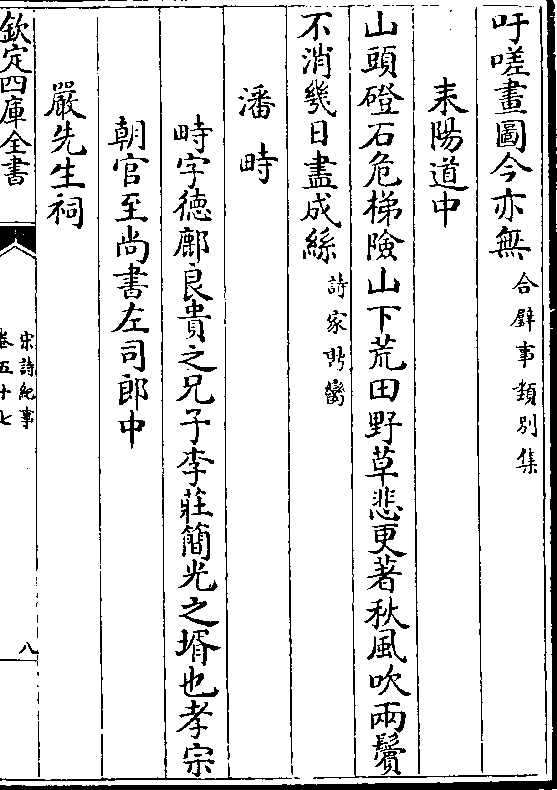 吁嗟畫圖今亦無 合璧事類別集
耒陽道中
山頭磴石危梯險山下荒田野草悲更著秋風吹兩鬢
不消幾日盡成絲 詩家鼎臠
潘時
時字德鄜良貴之兄子李莊簡光之壻也孝宗
朝官至尚書左司郎中
嚴先生祠
欽定四庫全書
宋詩紀事
卷五十七
八